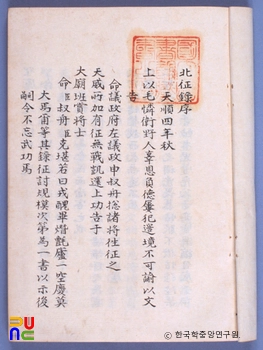 北征錄序
天順四年秋
上以毛憐衛野人辜思負德屢犯邊境不可諭以文
告
命議政府左議政申叔舟総諸將徃征之
天威所加有征無戰凱還上功告于
大廟班賞將士
命臣叔舟臣克堪若曰戎醜畢殲氈廬一空慶莫
大焉甫等其錄征討規模次第為一書以示後
嗣令不忘武功焉
ⓒ 한국학중앙연구원